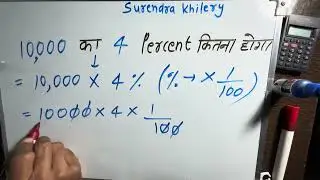 Surendra Khilery
10,000 का 4 Percent कितना होगा
= 10,000 × 4 % (% → × 1/100)
= 10000 × 4 × 1/100